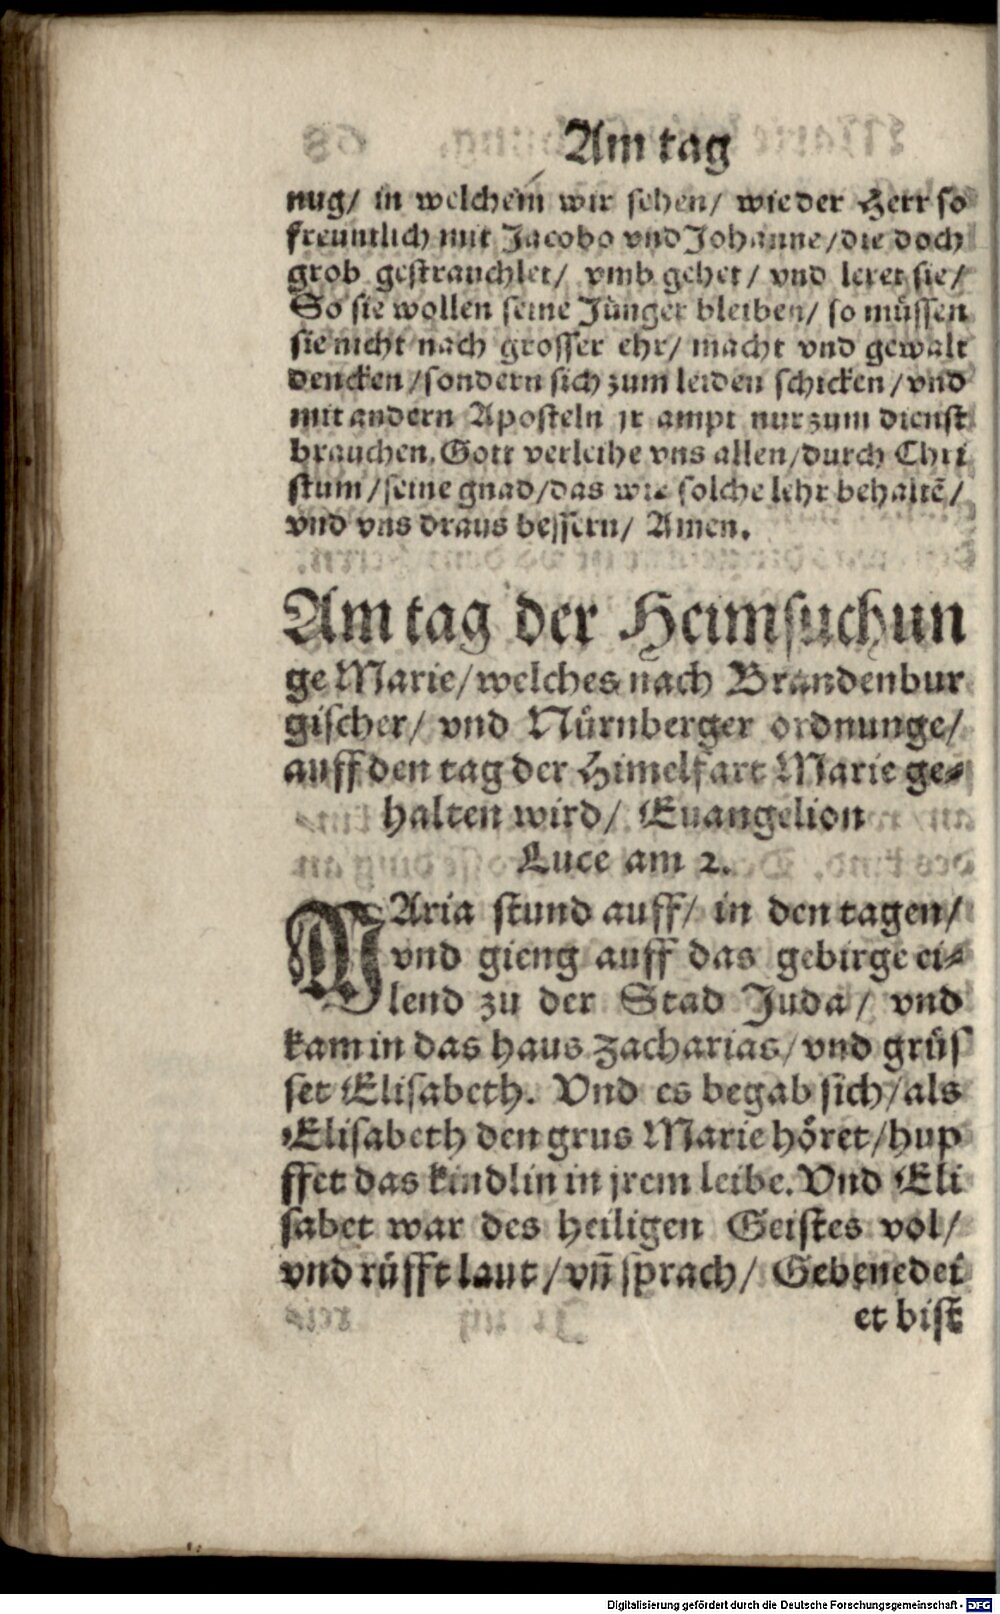 Am tag
nug/ in welchem wir sehen/ wie der Herr so
freuntlich mit Jacobo vnd Johanne/die doch
grob gestrauchlet/ vmb gehet/ vnd leret sie/
So sie wollen seine Jünger bleiben/ so müssen
sie nicht nach grosser ehr/ macht vnd gewalt
dencken/sondern sich zum leiden schicken/vnd
mit andern Aposteln jr ampt nur zum dienst
brauchen. Gott verleihe vns allen/durch Chri
stum/seine gnad/das wir solche lehr behaltē/
vnd vns draus bessern/ Amen.
Am tag der Heimsuchun
ge Marie/welches nach Brandenbur
gischer/ vnd Nürnberger ordnunge/
auff den tag der Himelfart Marie ge⸗
halten wird/ Euangelion
Luce am 2.
MAria stund auff/ in den tagen/
vnd gieng auff das gebirge ei⸗
lend zu der Stad Juda/ vnd
kam in das haus Zacharias/vnd grüs
set Elisabeth. Vnd es begab sich/als
Elisabeth den grus Marie höret/hup
ffet das kindlin in jrem leibe. Vnd Eli
sabet war des heiligen Geistes vol/
vnd rüfft laut/vñ sprach/ Gebenedei
et bist
Digitalisierung gefördert durch die Deutsche Forschungsgemeinschaft - DFG